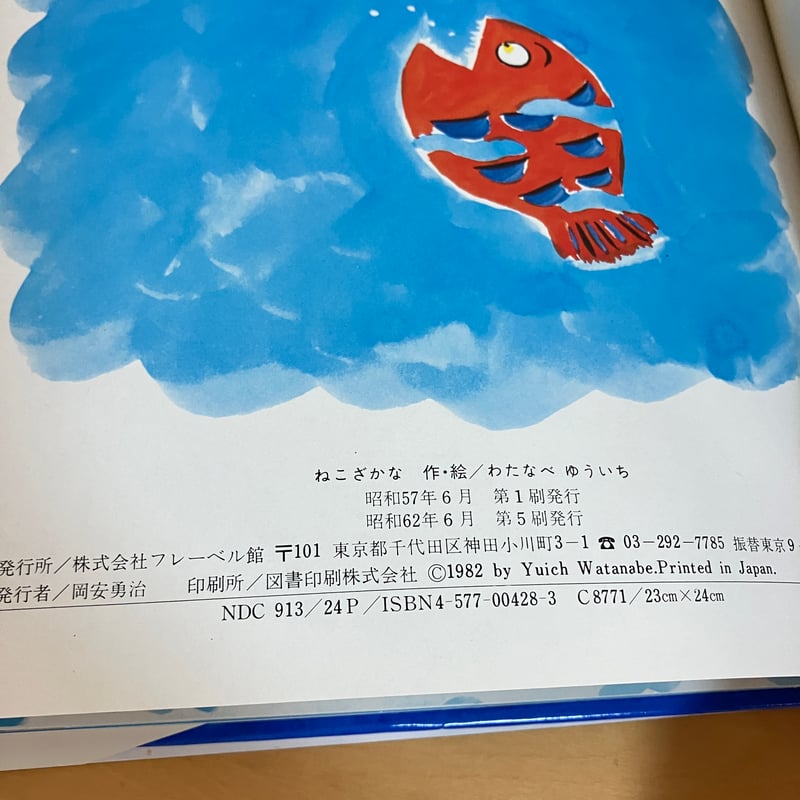 ねこざかな 作・絵／わたなべ ゆういち
昭和57年6月 第1刷発行
昭和62年6月 第5刷発行
発行所／株式会社フレーベル館 〒101 東京都千代田区神田小川町3−1 ☎ 03−292−7785 振替東京9−
発行者／岡安勇治 印刷所／図書印刷株式会社 ©1982 by Yuich Watanabe.Printed in Japan.
NDC 913／24P／ISBN4-577-00428-3 C8771／23cm×24cm